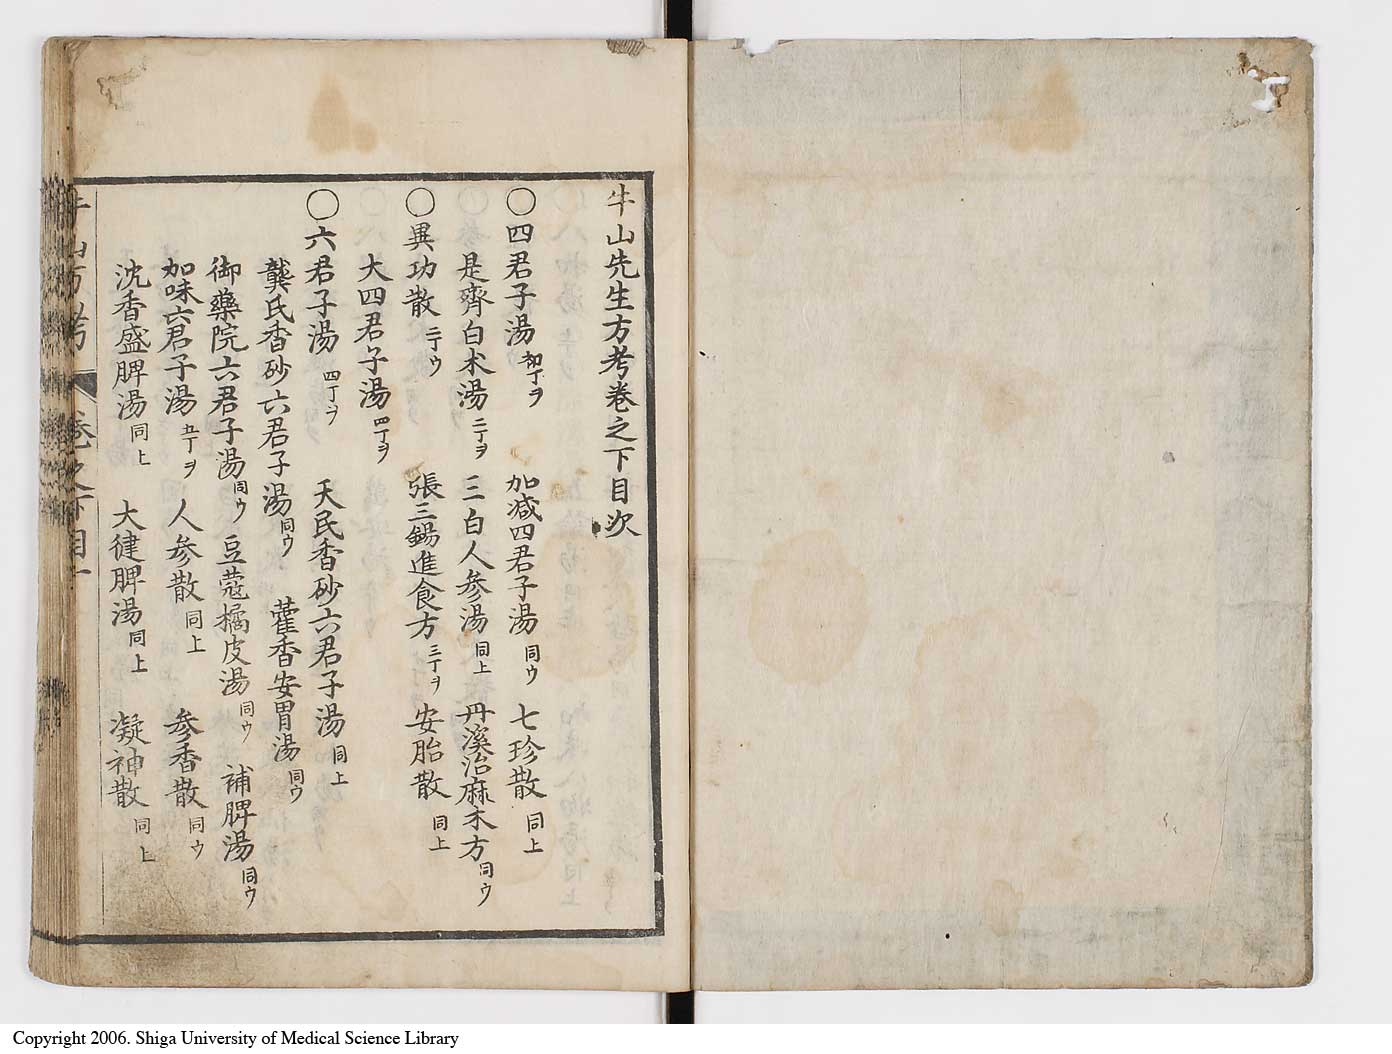 牛山先生方考卷之下目次
〇四君子湯 初丁ヲ 加减四君子湯 同ウ 七珍散 同上
是齊白朮湯 二丁ヲ 三白人参湯 同上 丹溪治麻木方 同ウ
〇異功散 二丁ウ 張三錫進食方 三丁ヲ 安胎散 同上
大四君子湯 四丁ヲ
〇六君子湯 四丁ヲ 天民香砂六君子湯 同上
龔氏香砂六君子湯 同ウ 藿香安胃湯 同ウ
御藥院六君子湯 同ウ 豆蔻橘皮湯 同ウ 補脾湯 同ウ
加味六君子湯 五丁ヲ 人参散 同上 参香散 同ウ
沈香盛脾湯 同上 大健脾湯 同上 凝神散 同上
牛山方考 卷之下目 一
Copyright 2006. Shiga University of Medical Science Library